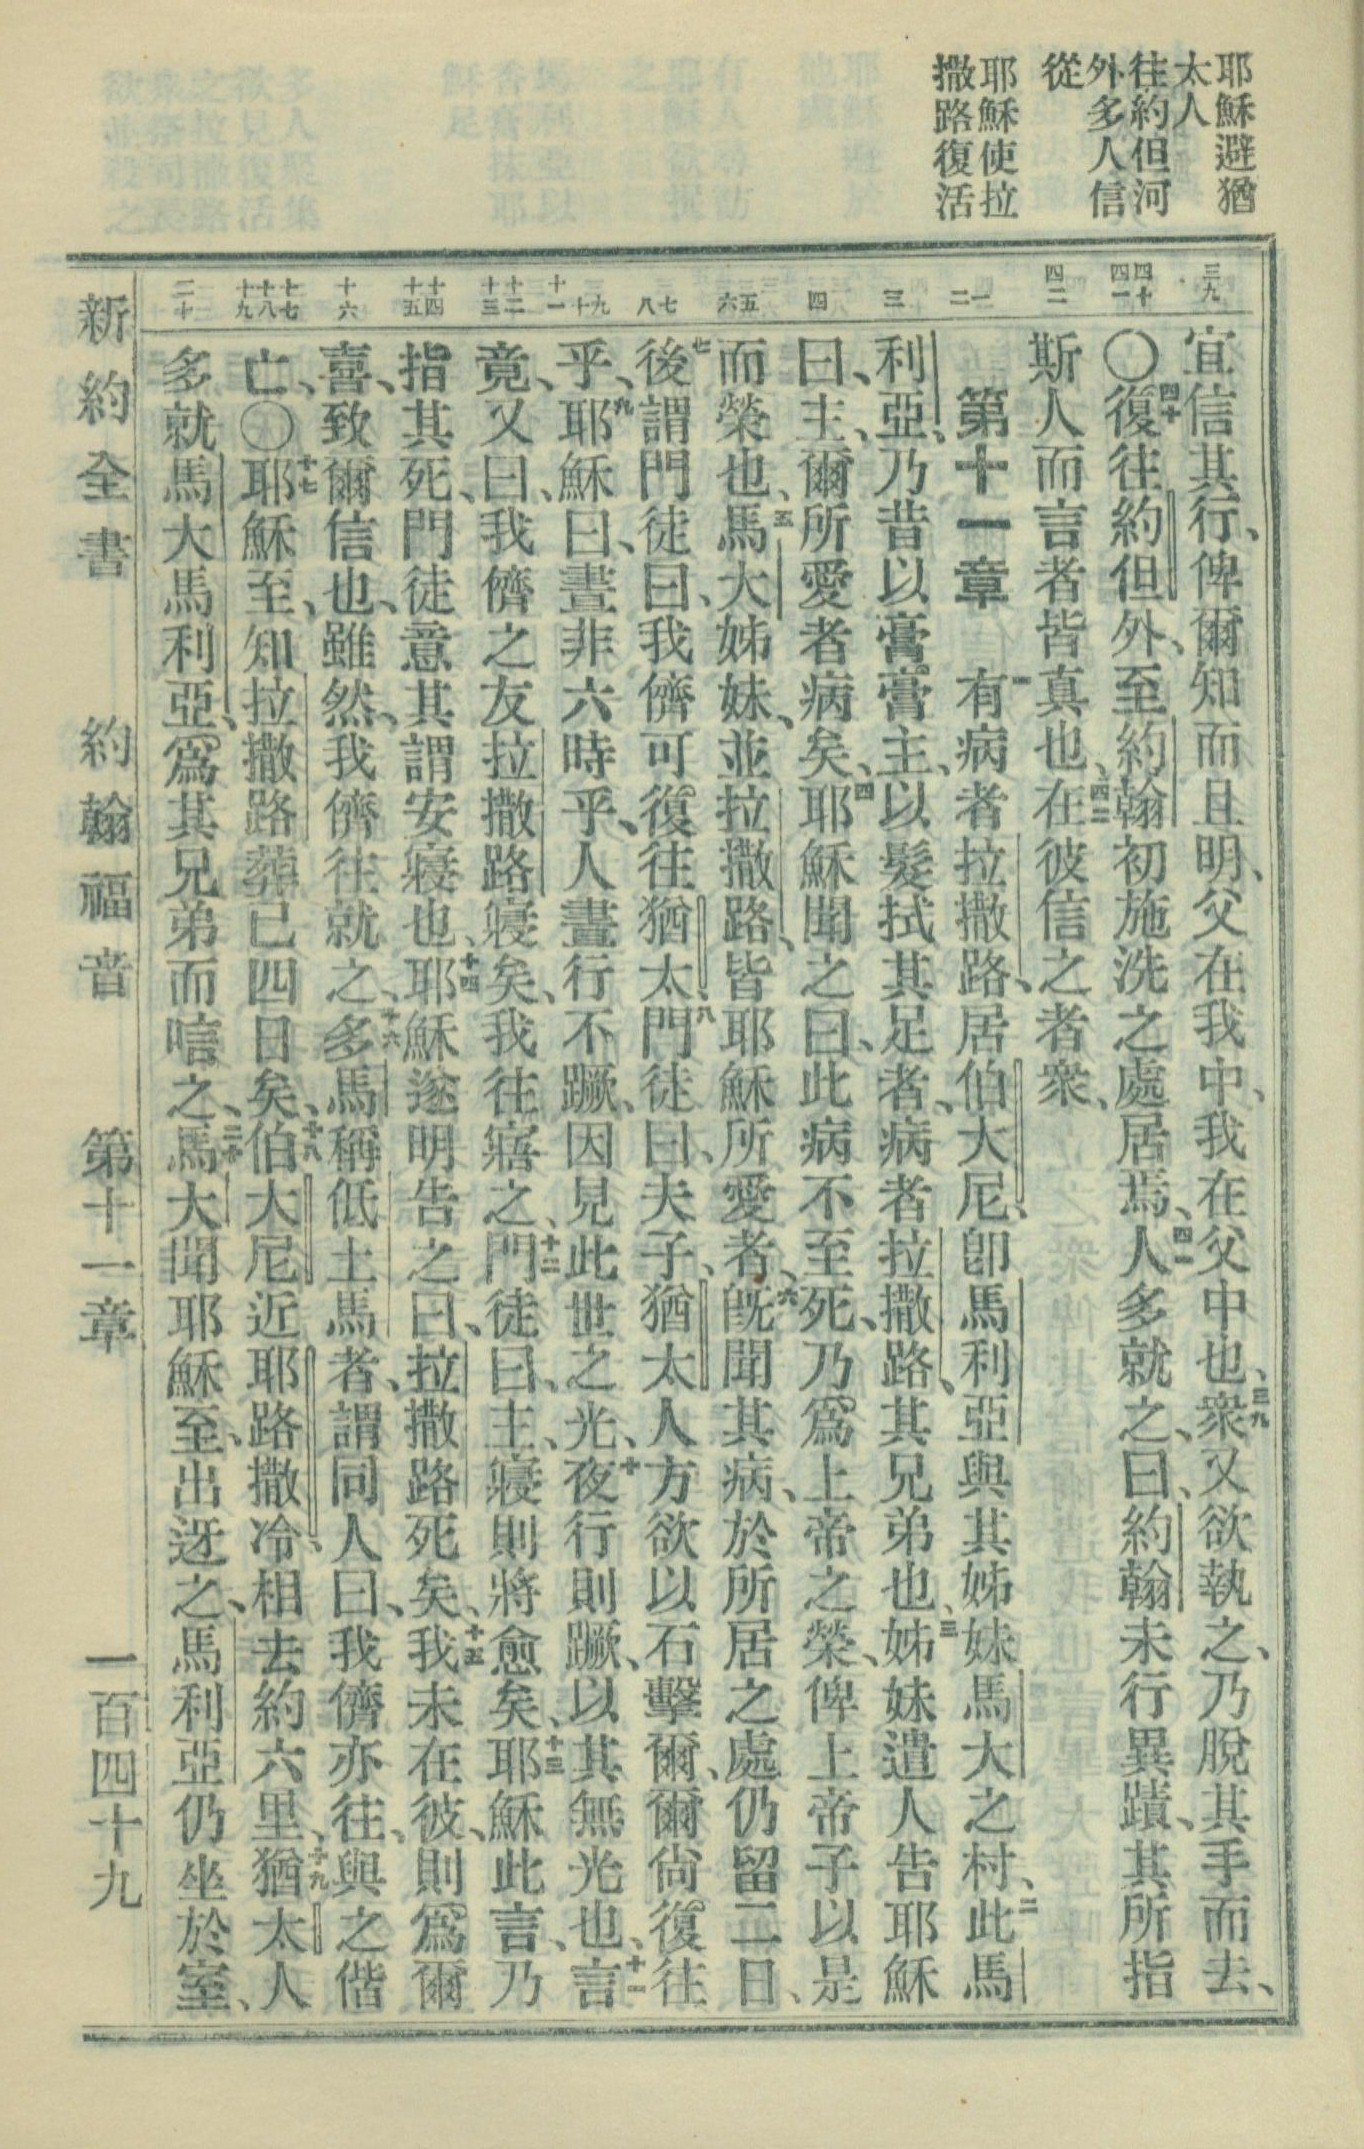 耶穌避猶
太人
往約但河
外多人信
從
耶穌使拉
撒路復活
三九
四十
四一
四二
一
二
三
四
五
六
七
八
九
十
十一
十二
十三
十四
十五
十六
十七
十八
十九
二十
宜信其行、俾爾知而且明、父在我中、我在父中也、三九衆又欲執之、乃脫其手而去、
〇四十復往約但外、至約翰初施洗之處居焉、四一人多就之、曰、約翰未行異蹟、其所指
斯人而言者皆真也、四二在彼信之者衆、
第十一章 一有病者拉撒路、居伯大尼、卽馬利亞與其姊妹馬大之村、二此馬
利亞、乃昔以膏膏主、以髮拭其足者、病者拉撒路、其兄弟也、三姊妹遣人告耶穌
曰、主、爾所愛者病矣、四耶穌聞之曰、此病不至死、乃爲上帝之榮、俾上帝子以是
而榮也、五馬大姊妹、並拉撒路、皆耶穌所愛者、六旣聞其病、於所居之處仍留二日、
七後謂門徒曰、我儕可復往猶太、八門徒曰、夫子、猶太人方欲以石擊爾、爾尙復往
乎、九耶穌曰、晝非六時乎、人晝行不蹶、因見此世之光、十夜行則蹶、以其無光也、十一言
竟、又曰、我儕之友拉撒路寢矣、我往寤之、十二門徒曰、主、寢則將愈矣、十三耶穌此言、乃
指其死、門徒意其謂安寢也、十四耶穌遂明告之曰、拉撒路死矣、十五我未在彼、則爲爾
喜、致爾信也、雖然、我儕往就之、十六多馬稱低土馬者、謂同人曰、我儕亦往、與之偕
亡、〇十七耶穌至、知拉撒路葬已四日矣、十八伯大尼近耶路撒冷、相去約六里、十九猶太人
多就馬大馬利亞、爲其兄弟而唁之、二十馬大聞耶穌至、出迓之、馬利亞仍坐於室、
新約全書 約翰福音 第十一章 一百四十九